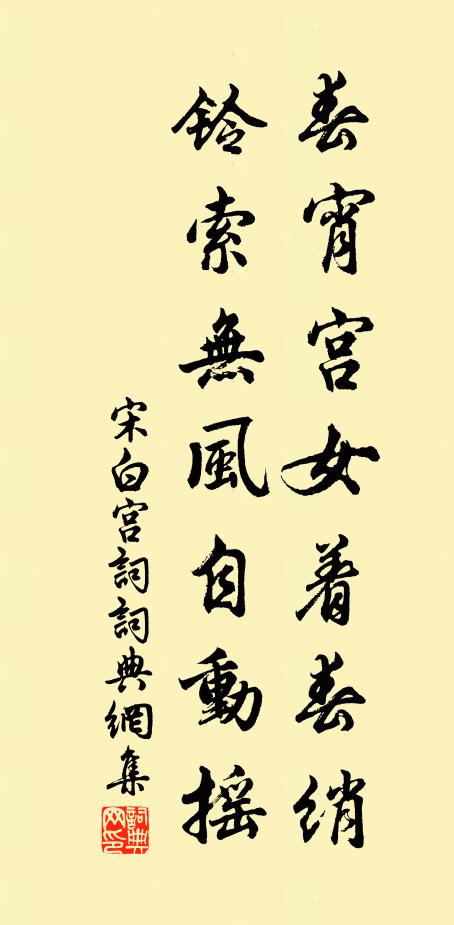 春宵宫女着春绡
鈴索無風自動摇
宋白宫詞詞典網集
詞典網印